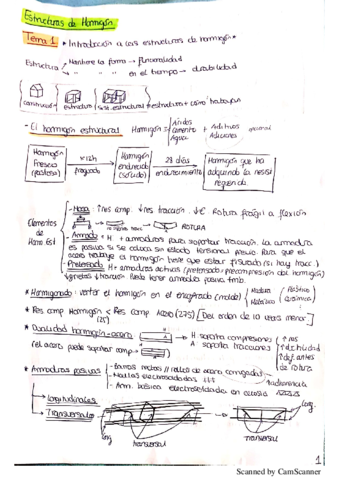 Estructuras de Hormigón
Tema 1 * Introducción a las estructuras de hormigón *
Estructura Mantiene la forma → funcionalidad
" " " en el tiempo → durabilidad
- El hormigón estructural Hormigón = Áridos Cemento Agua + Aditivos Adiciones
Hormigón fresco (pastoso)
≈12h fraguado
Hormigón endurecido (sólido)
28 días endurecimiento
Hormigón que ha adquirido la resist requerida
Elementos de Horm Est
- Masa: ↑res comp. ↓res tracción. ↓€ Rotura frágil a flexión
ROTURA
- Armado = H + armaduras para soportar tracción. La armadura
es pasiva si se coloca sin estado tensional previo. Para que el
acero trabaje el hormigón tiene que estar fisurado (si hay tracc.)
- Pretensado = H + armaduras activas (pretensado = precompresión del hormigón)
* Hormigonado: verter el hormigón en el encofrado (molde)
* Res comp Hormigón < Res comp Acero (275) [Del orden de 10 veces menor]
* Dualidad hormigón-acero
(el acero puede soportar comp)
H soporta compresiones
A soporta tracciones
↑ res
↑ ductilidad
↑ def. antes de rotura
* Armaduras pasivas
- Barras rectas // rollo de acero, corrugadas
- Mallas electrosoldadas
- Arm. básica electrosoldada en celosía
adherencia
→ Longitudinales
→ Transversales
long
transversal
transversal
long
1
Scanned by CamScanner